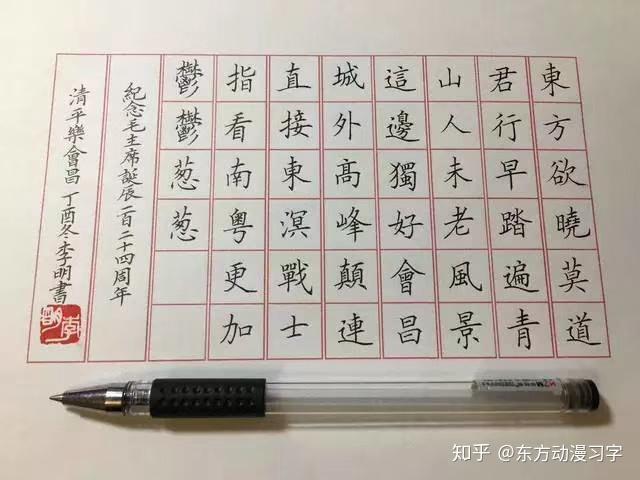 東方欲曉莫道
君行早踏遍青
山人未老風景
這邊獨好會昌
城外髙峰顛連
直接東溟戰士
指看南粵更加
鬱鬱葱葱
紀念毛主席誕辰一百二十四周年
清平樂會昌 丁酉冬李明書
知乎 @东方动漫习字